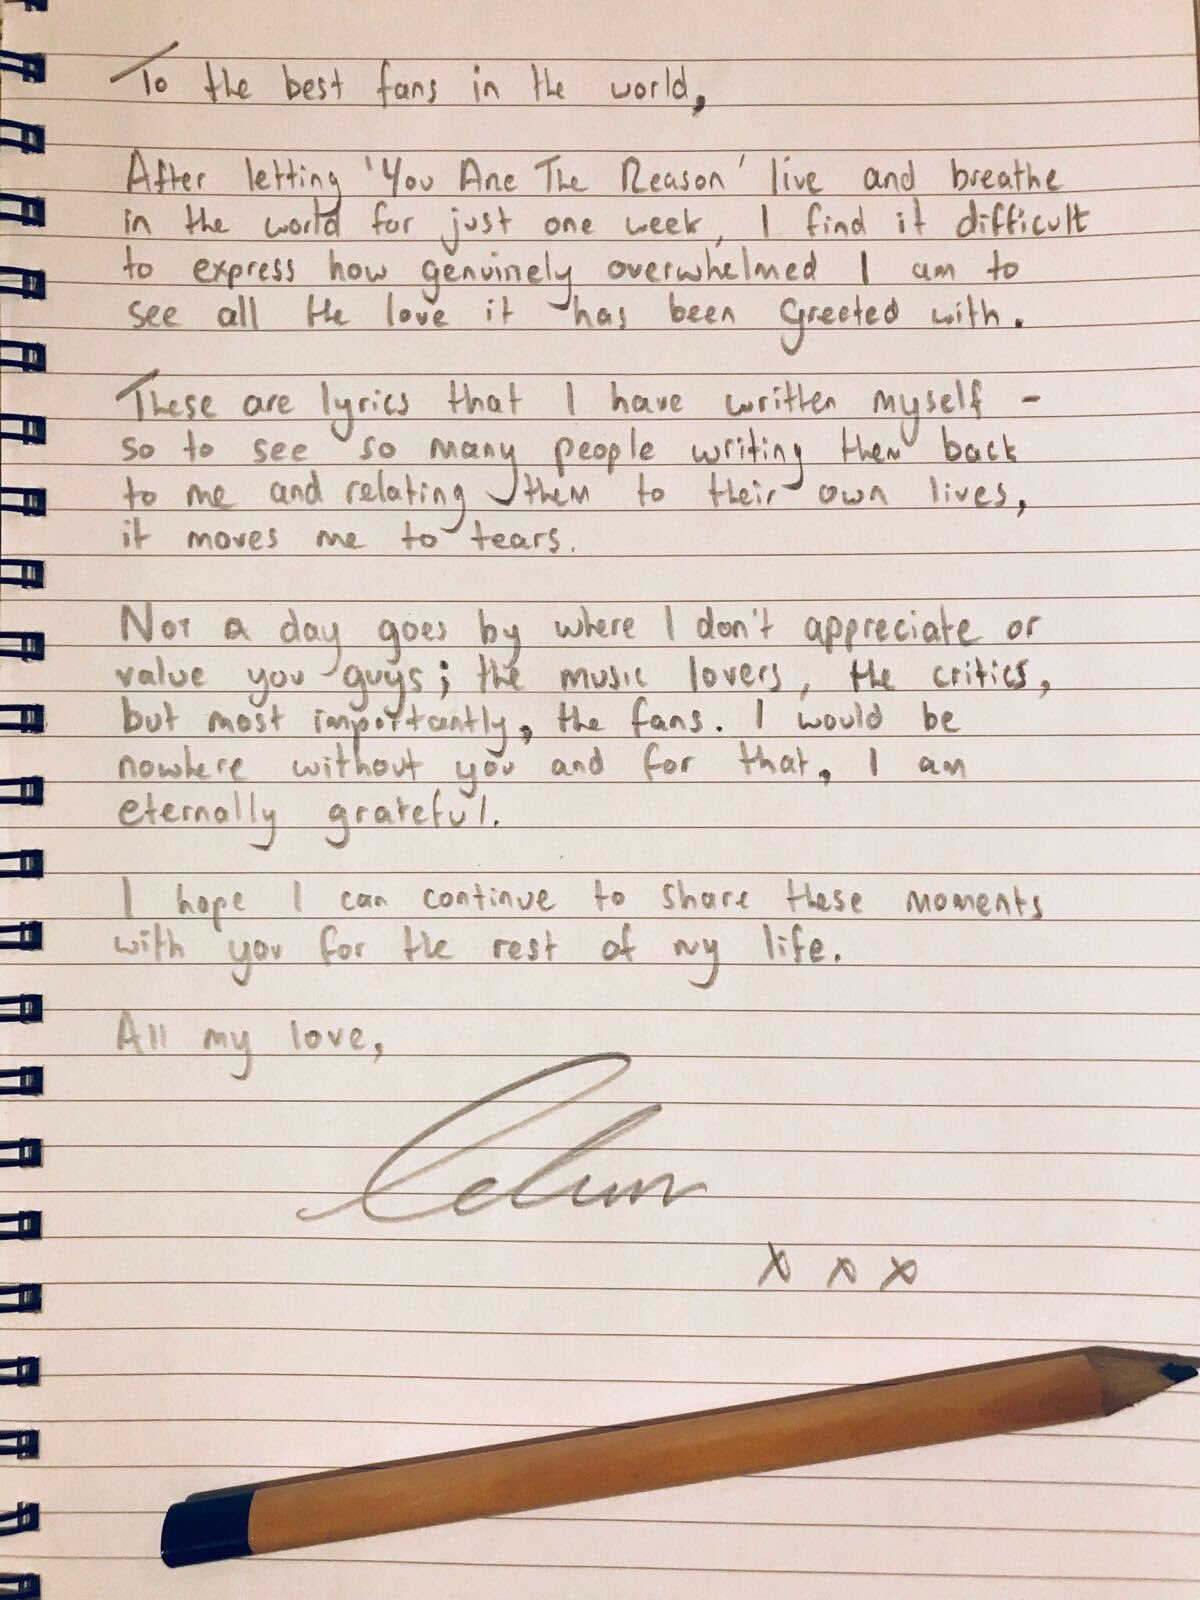 To the best fans in the world,
After letting 'You Are The Reason' live and breathe
in the world for just one week, I find it difficult
to express how genuinely overwhelmed I am to
see all the love it has been greeted with.
These are lyrics that I have written myself -
so to see so many people writing them back
to me and relating them to their own lives,
it moves me to tears.
Not a day goes by where I don't appreciate or
value you guys; the music lovers, the critics,
but most importantly, the fans. I would be
nowhere without you and for that, I am
eternally grateful.
I hope I can continue to share these moments
with you for the rest of my life.
All my love,
Calum
x x x